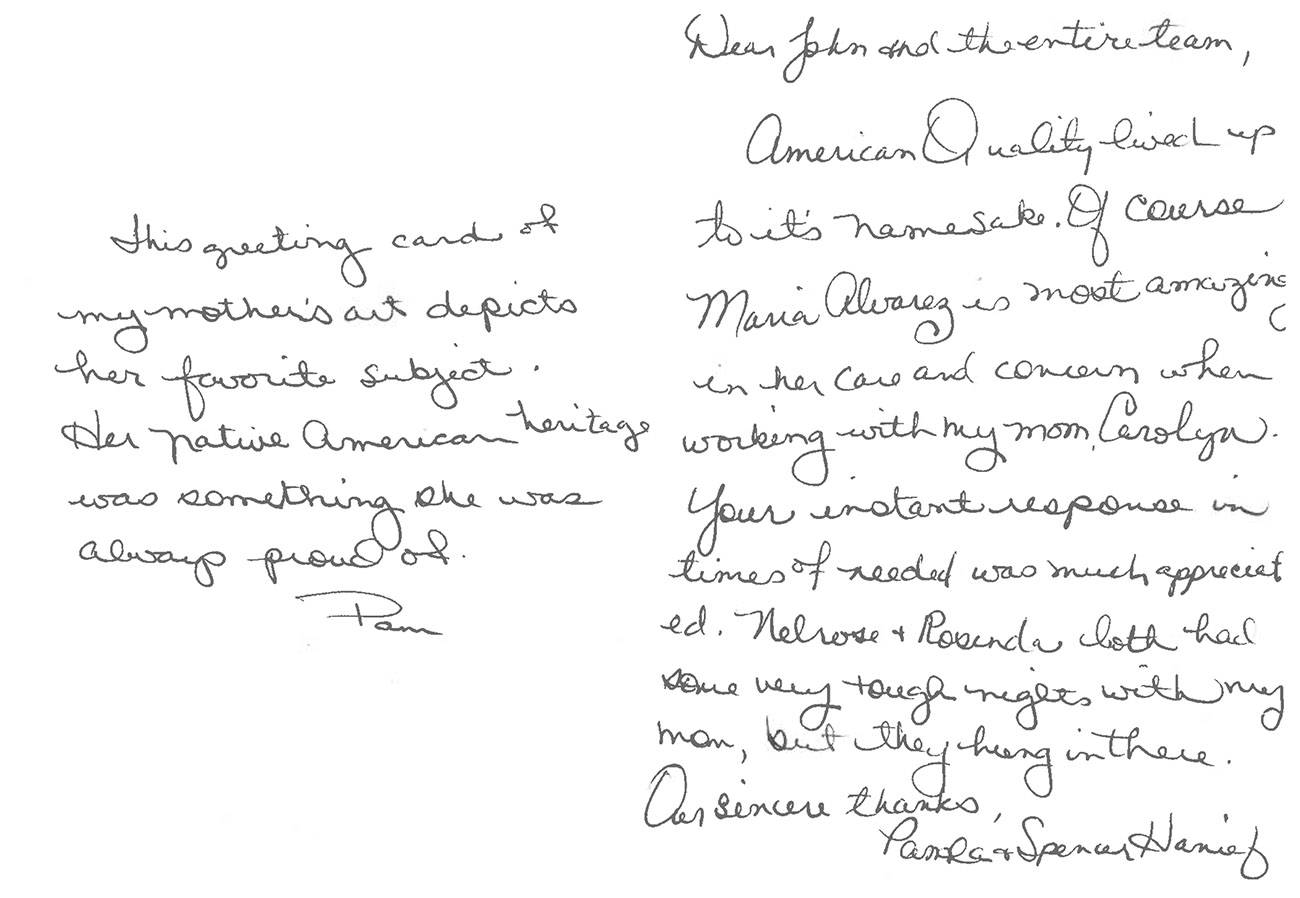 This greeting card of
my mother's art depicts
her favorite subject.
Her native American heritage
was something she was
always proud of.
Pam
Dear John and the entire team,
American Quality lived up
to it's namesake. Of course
Maria Alvarez is most amazing
in her care and concern when
working with my mom, Carolyn.
Your instant response in
times of needed was much appreciat
ed. Nelrose + Rosenda both had
some very tough nights with my
mom, but they hung in there.
Our sincere thanks,
Pamela + Spencer Hanief